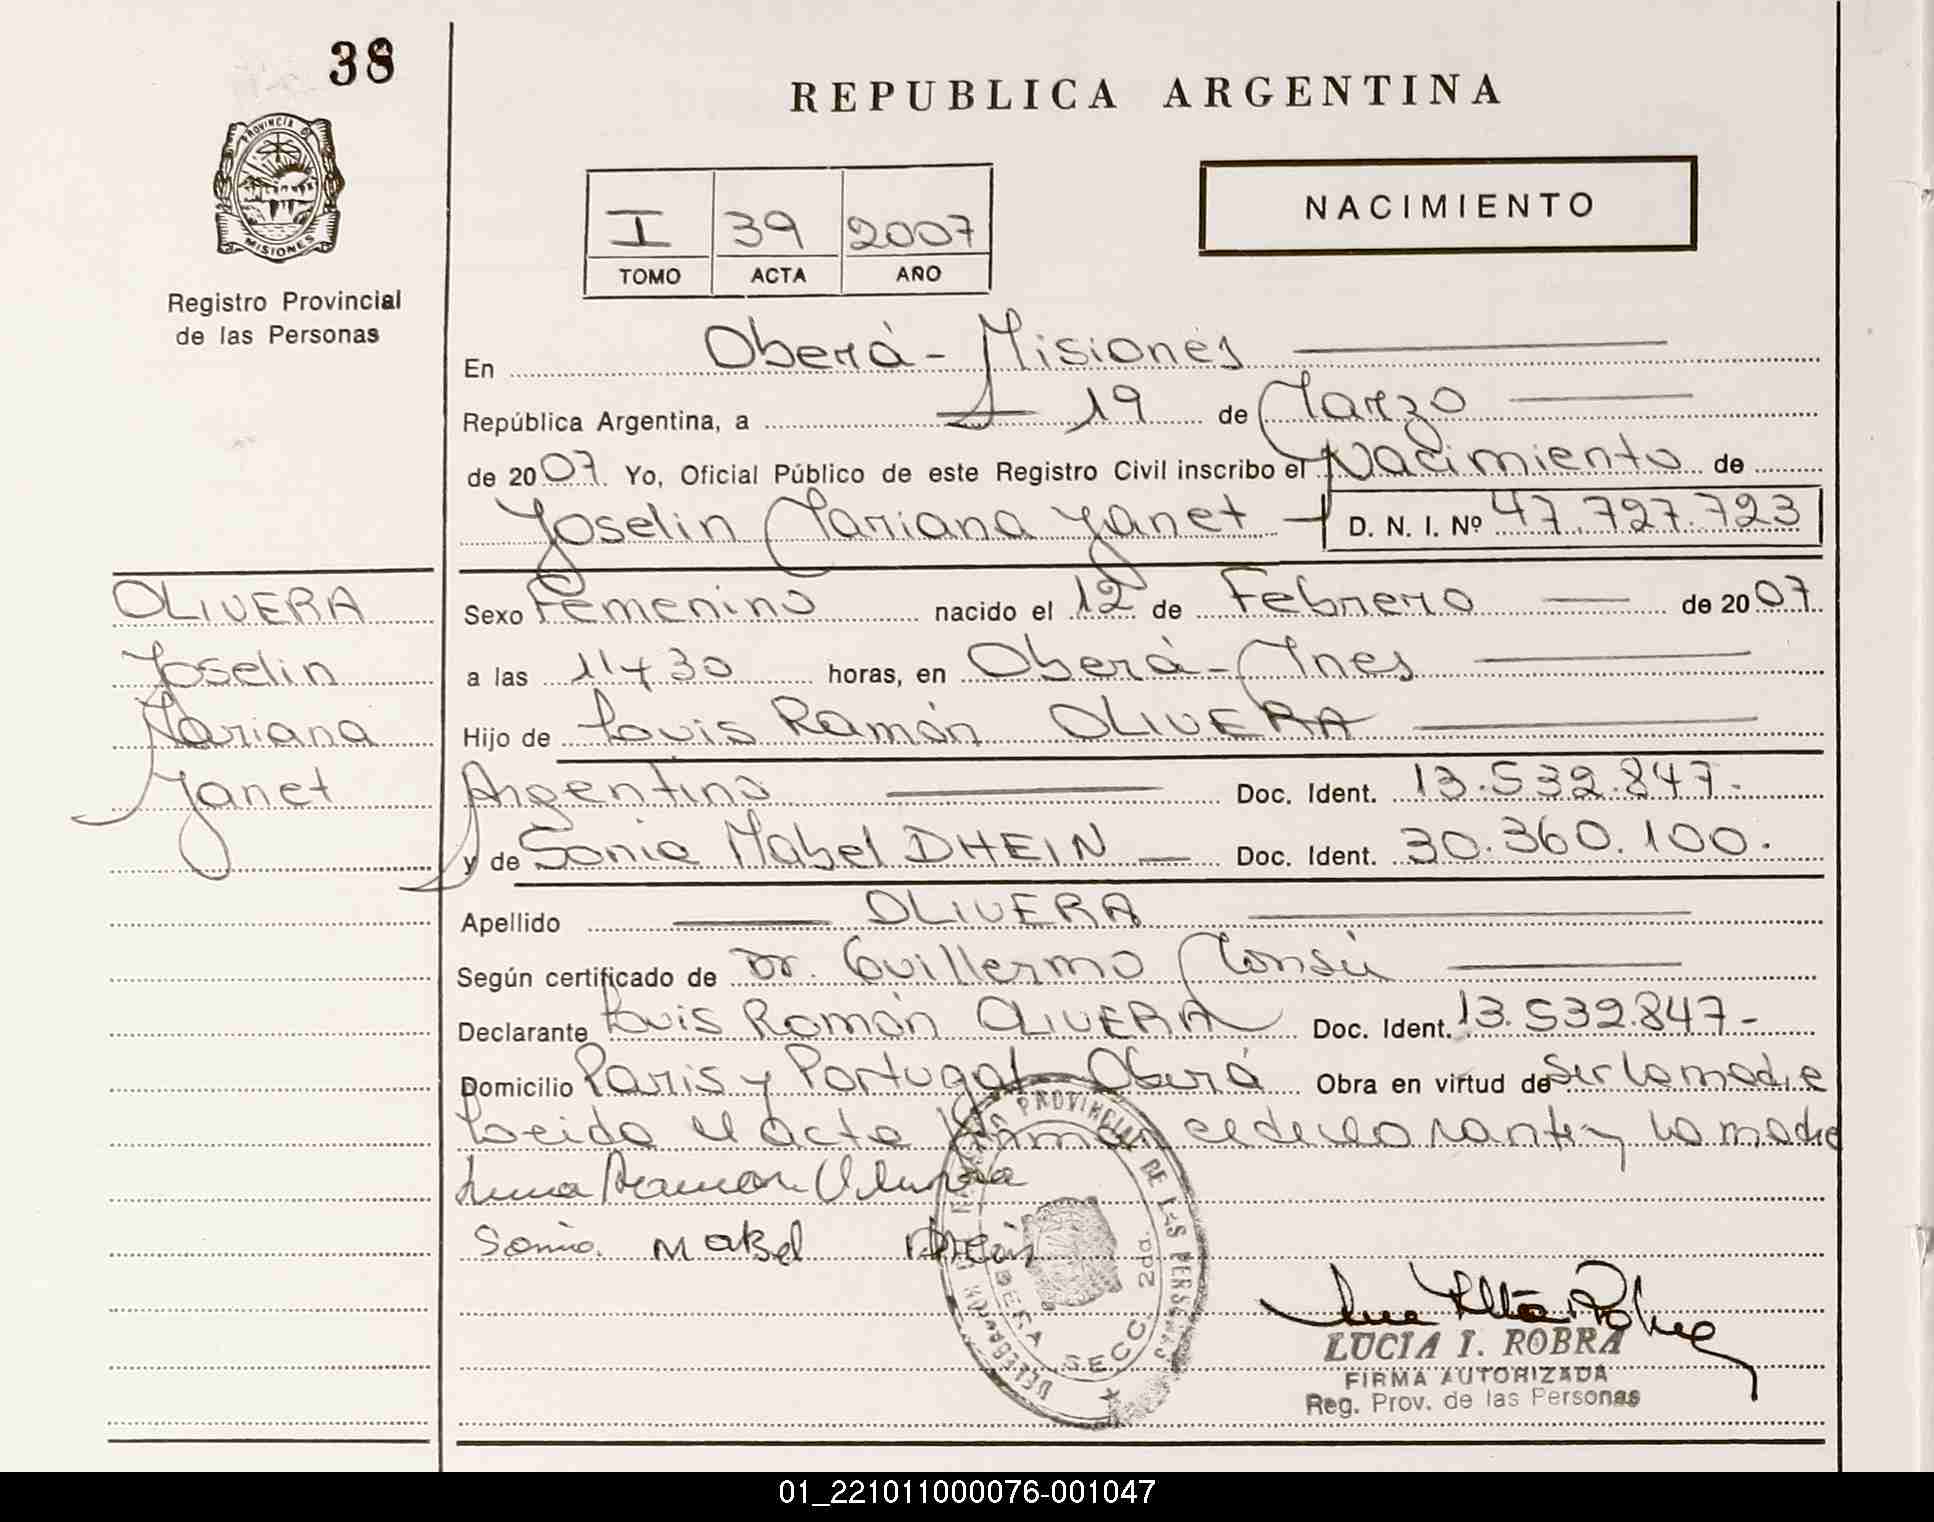 38
REPUBLICA ARGENTINA
PROVINCIA DE
MISIONES
Registro Provincial
de las Personas
I 39 2007
TOMO ACTA AÑO
NACIMIENTO
En Oberá - Misiones
República Argentina, a 19 de Marzo
de 2007. Yo, Oficial Público de este Registro Civil inscribo el Nacimiento de
Joselin Mariana Yanet D. N. I. Nº 47.727.723
OLIVERA
Joselin
Mariana
Yanet
Sexo Femenino nacido el 12 de Febrero de 2007
a las 11 y 30 horas, en Oberá - Mnes
Hijo de Luis Ramón OLIVERA
Argentino Doc. Ident. 13.532.847.-
y de Sonia Mabel DHEIN Doc. Ident. 30.360.100.
Apellido OLIVERA
Según certificado de Dr. Guillermo
Declarante Luis Ramón OLIVERA Doc. Ident. 13.532.847-
Domicilio Paris y Portugal - Oberá Obra en virtud de ser la madre
Leida el acta firman el declarante y la madre
Ramon Olivera
Sonia Mabel Dhein
DELEGACION REGISTRO PROVINCIAL DE LAS PERSONAS
OBERA SECC. 2da.
LUCIA I. ROBRA
FIRMA AUTORIZADA
Reg. Prov. de las Personas
01_221011000076-001047